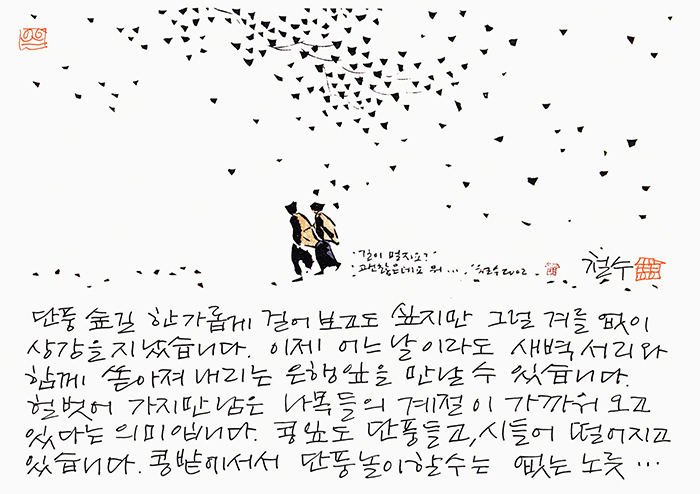 "길이 멀지요?"
괜찮은데요 뭐... 철수 2002
철수
단풍 숲길 한가롭게 걸어 보고도 싶지만 그럴 겨를 없이
상강을 지났습니다. 이제 어느 날이라도 새벽 서리와
함께 쏟아져 내리는 은행잎을 만날 수 있습니다.
헐벗어 가지만 남은 나목들의 계절이 가까워 오고
있다는 의미입니다. 콩잎도 단풍들고, 시들어 떨어지고
있습니다. 콩밭에 서서 단풍놀이 할 수는 없는 노릇...